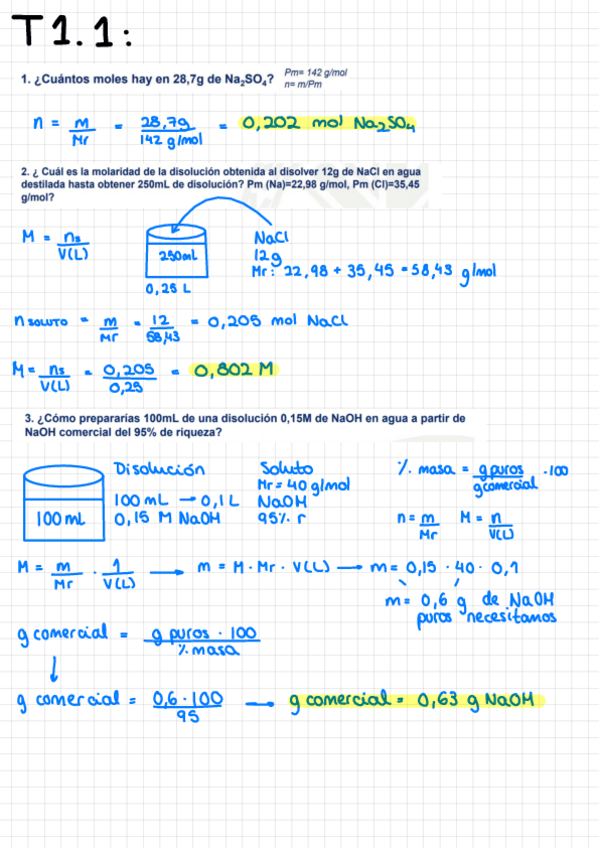 T1.1:
1. ¿Cuántos moles hay en 28,7g de Na₂SO₄? Pm= 142 g/mol
n= m/Pm
n = m/Mr = 28,7g/142 g/mol = 0,202 mol Na₂SO₄
2. ¿ Cuál es la molaridad de la disolución obtenida al disolver 12g de NaCl en agua
destilada hasta obtener 250mL de disolución? Pm (Na)=22,98 g/mol, Pm (Cl)=35,45
g/mol?
M = ns/V(L)
250mL
0,25 L
NaCl
12g
Mr: 22,98 + 35,45 = 58,43 g/mol
n SOLUTO = m/Mr = 12/58,43 = 0,205 mol NaCl
M = ns/V(L) = 0,205/0,25 = 0,802 M
3. ¿Cómo prepararías 100mL de una disolución 0,15M de NaOH en agua a partir de
NaOH comercial del 95% de riqueza?
100 mL
Disolución
100 mL → 0,1 L
0,15 M NaOH
Soluto
Mr = 40 g/mol
NaOH
95% r
% masa = g puros/g comercial · 100
n = m/Mr M = n/V(L)
M = m/Mr · 1/V(L) → m = M · Mr · V(L) → m = 0,15 · 40 · 0,1
m = 0,6 g de NaOH
puros necesitamos
g comercial = g puros · 100/% masa
↓
g comercial = 0,6 · 100/95 → g comercial = 0,63 g NaOH